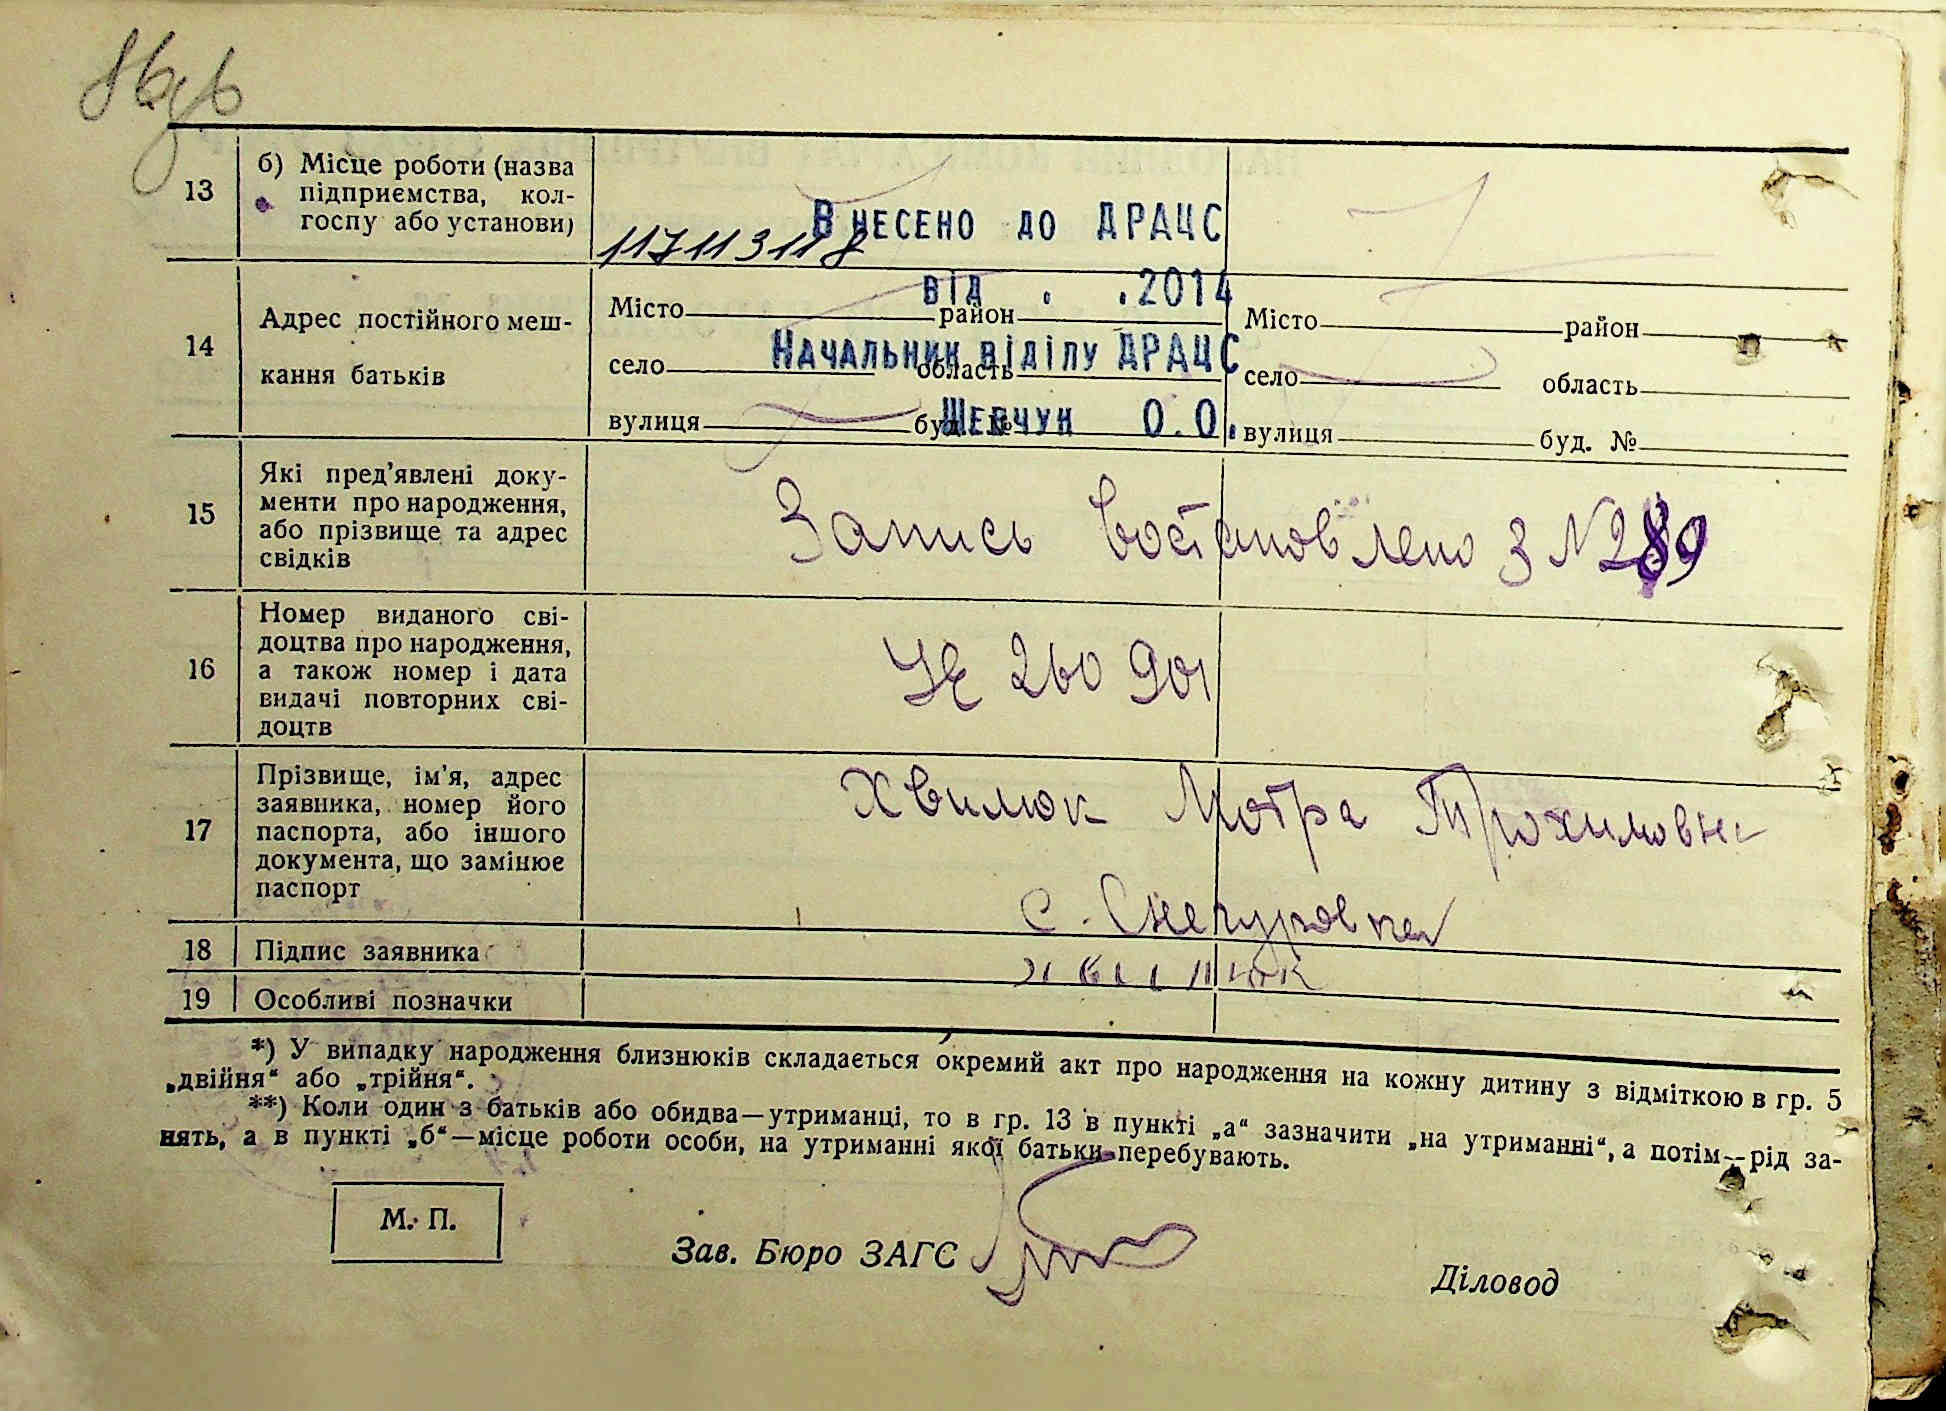 13
б) Місце роботи (назва
підприємства, кол-
госпу або установи)
ВНЕСЕНО ДО ДРАЦС
117113118
14
Адрес постійного меш-
кання батьків
від . .2014
Місто район
Місто район
Начальник відділу ДРАЦС
село область
село область
Шевчук О.О.
вулиця буд. №
вулиця буд. №
15
Які пред'явлені доку-
менти про народження,
або прізвище та адрес
свідків
Запись востановлено з №289
16
Номер виданого сві-
доцтва про народження,
а також номер і дата
видачі повторних сві-
доцтв
260901
17
Прізвище, ім'я, адрес
заявника, номер його
паспорта, або іншого
документа, що замінює
паспорт
Хвилюк Мотра Трохимовна
с.
18
Підпис заявника
Хвилюк
19
Особливі позначки
*) У випадку народження близнюків складається окремий акт про народження на кожну дитину з відміткою в гр. 5
„двійня“ або „трійня“.
**) Коли один з батьків або обидва—утриманці, то в гр. 13 в пункті „а“ зазначити „на утриманні“, а потім—рід за-
нять, а в пункті „б“—місце роботи особи, на утриманні якої батьки перебувають.
М. П.
Зав. Бюро ЗАГС
Діловод